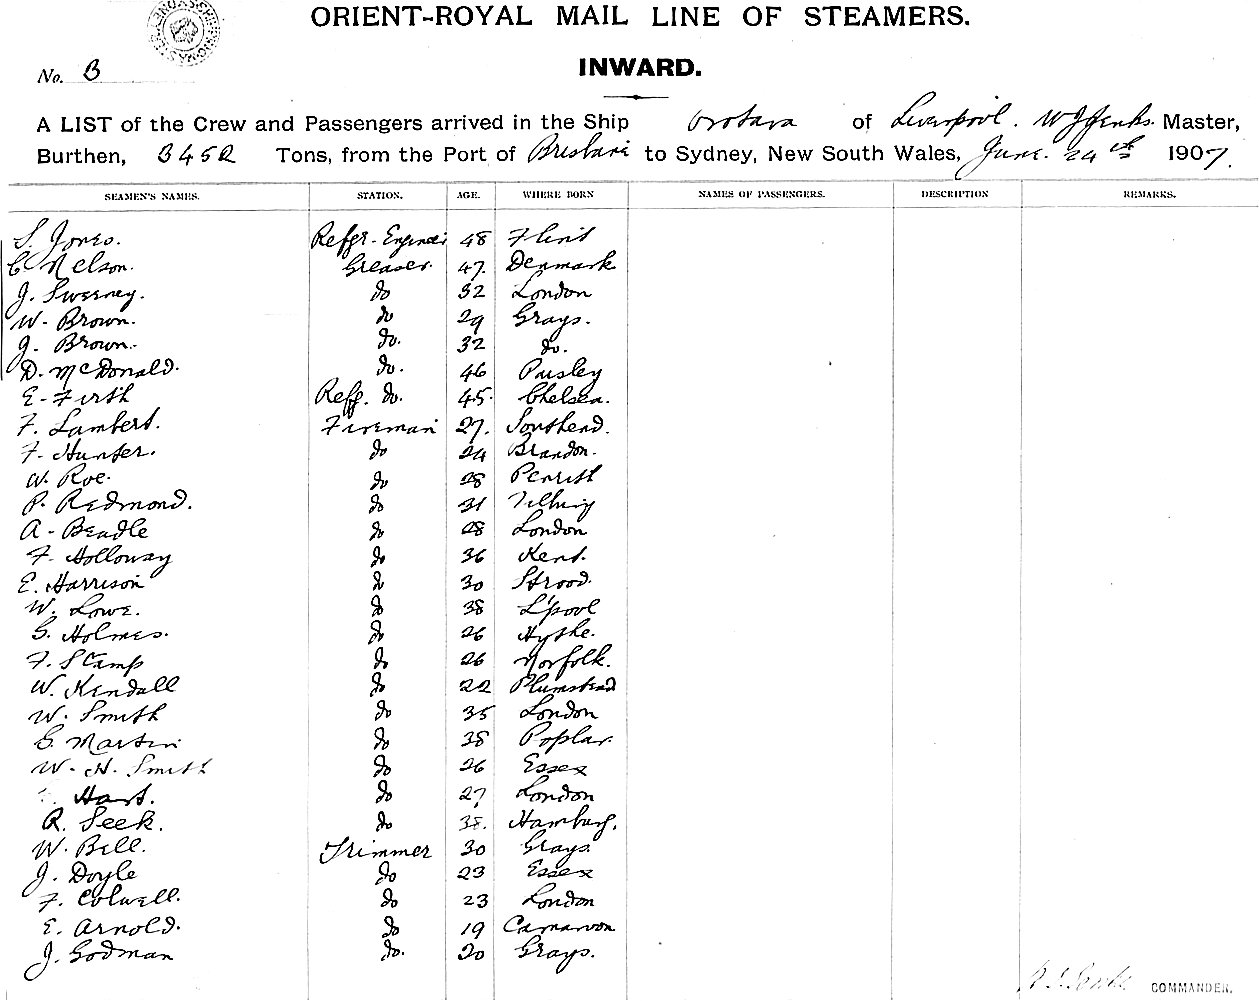 ORIENT-ROYAL MAIL LINE OF STEAMERS.
No. B
INWARD.
A LIST of the Crew and Passengers arrived in the Ship Orotava of Liverpool. W J Jenks. Master,
Burthen, 3452 Tons, from the Port of Brisbane to Sydney, New South Wales, June. 24th 1907.
SEAMEN'S NAMES. STATION. AGE. WHERE BORN NAMES OF PASSENGERS. DESCRIPTION REMARKS.
S. Jones. Refgr-Engineer 48 Flint
C Nelson. Greaser. 47. Denmark
J. Sweeney. do 32 London
W. Brown. do 29 Grays.
J. Brown. do. 32 do.
D. McDonald. do. 46 Paisley
E. Firth Refg. do. 45. Chelsea.
F. Lambert. Fireman 27. Southend.
F. Hunter. do 24 Brandon.
W. Roe. do 28 Penrith
P. Redmond. do 31 Tilbury
A. Beadle do 28 London
F. Holloway do 36 Kent.
E. Harrison do 30 Strood.
W. Lowe. do 38 L'pool
G. Holmes. do 26 Hythe.
F. SCamp do 26 Norfolk.
W. Kendall do 22 Plumstead
W. Smith do 35 London
G. Martin do 38 Poplar.
W. H. Smith do 26 Essex
Hart. do 27 London
R. Seek. do 38. Hamburg.
W. Bell. Trimmer 30 Grays
J. Doyle do 23 Essex
F. Colwell. do 23 London
E. Arnold. do 19 Carnarvon
J. Godman do. 20 Grays.
COMMANDER.